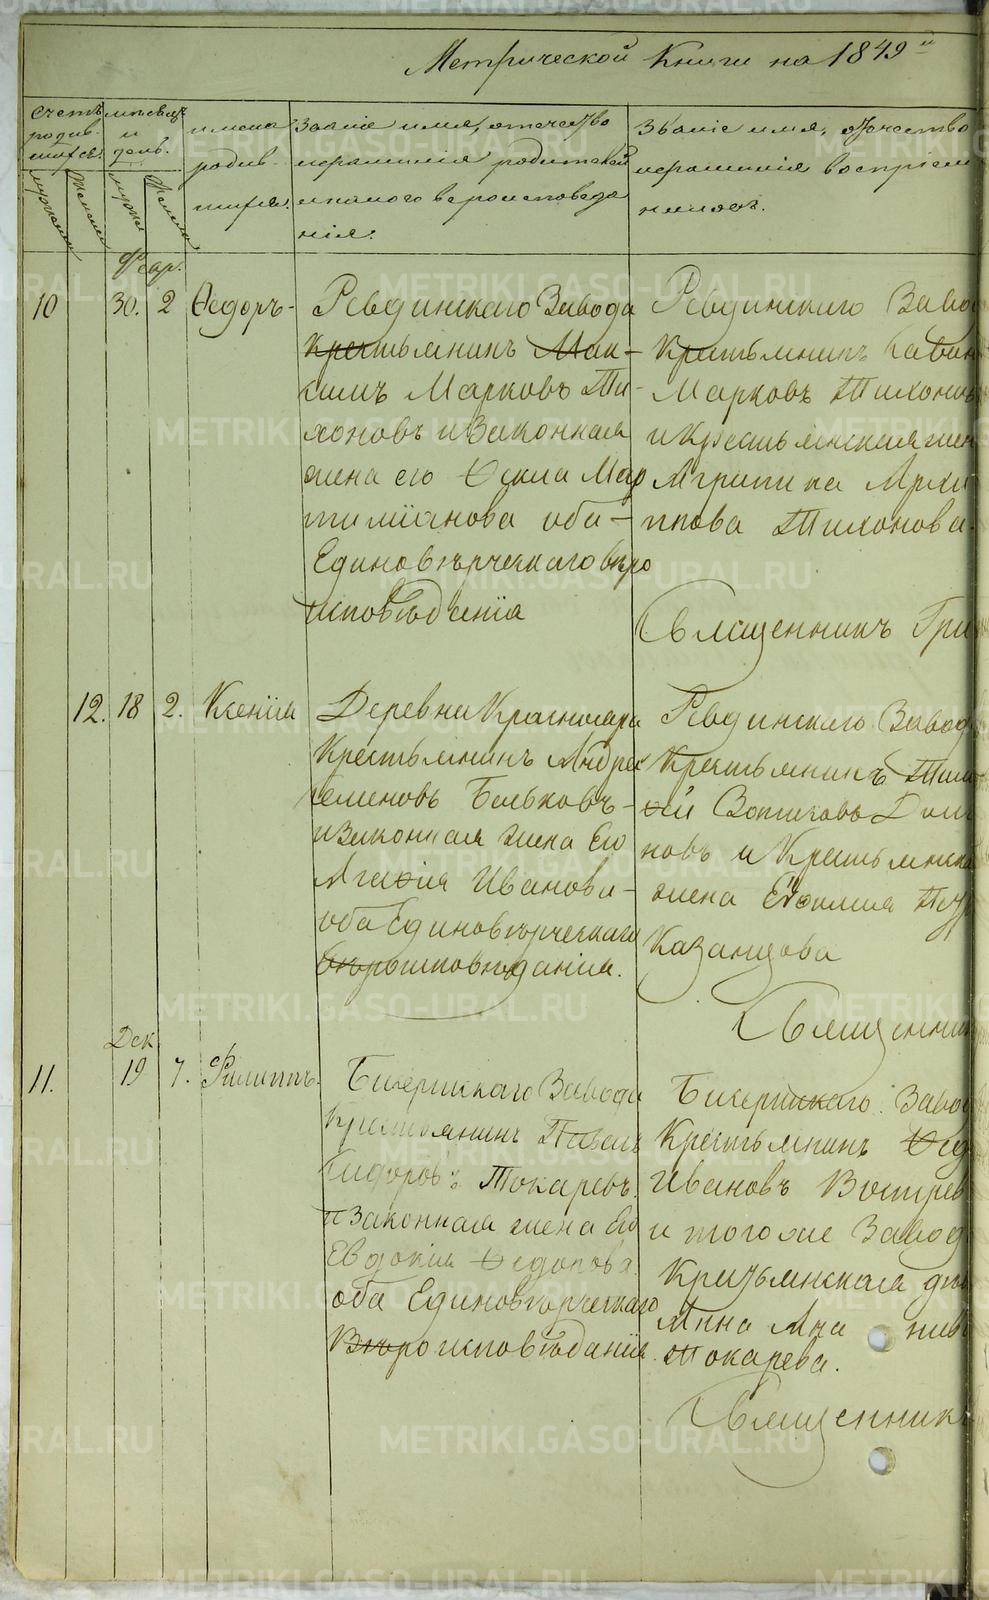 Метрической Книги на 1849й
Счетъ родив-шихся.
мужеска
женска
мѣсяцъ и день.
имена родив-шихся.
Званіе имя, отечество
и фамилія родителей
и какого вероисповеда
нія.
Званіе имя, отчество
и фамилія воспріем
никовъ.
10
30.
2
Ѳедоръ-
Ревдинскаго Завода
Крестьянинъ Мак-
симъ Марковъ Ти-
хоновъ и Законная
жена его Ѳекла Мар
тиміанова оба-
Единовѣрческаго вѣро
исповѣденія
Ревдинскаго Заво
Крестьянинъ Савин
Марковъ Тихонов
и Крестьянская жен
Агрипина Архи
пова Тихонова.
Священникъ Гри
12.
18
2.
Ксенія
Деревни Краснояра
Крестьянинъ Андрей
Семеновъ Бальковъ-
и Законная жена Его
Агафія Иванова-
оба Единовѣрческаго
Вѣроисповѣданія.
Ревдинскаго Завод
Крестьянинъ
новъ и Крестьянска
жена Евфимия
Казанцова
Священни
Дек.
11.
19
7.
Филиппъ.
Бисертскаго Завода
Крестьянинъ Павелъ
Сидоровъ Токаревъ.
и Законная жена Его
Евдокія Ѳедотова.
оба Единовѣрческаго
Вѣроисповѣданія.
Бисертскаго Заво
Крестьянинъ Ѳед
Ивановъ Востре
и того же Завод
Крестьянская
Анна
Токарева.
Священник
METRIKI.GASO-URAL.RU